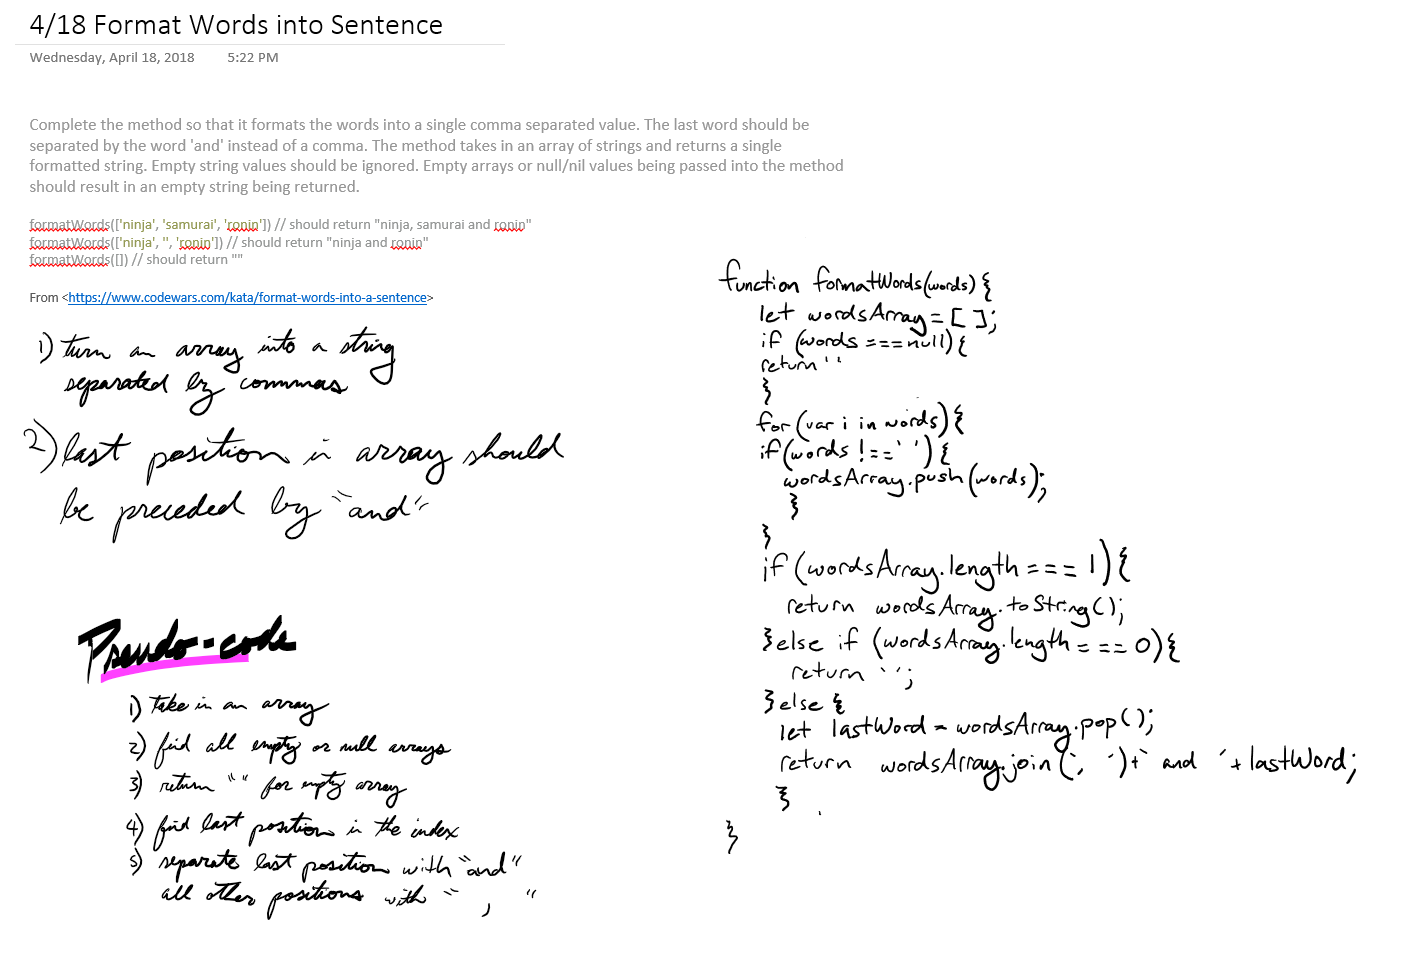 4/18 Format Words into Sentence
Wednesday, April 18, 2018 5:22 PM
Complete the method so that it formats the words into a single comma separated value. The last word should be
separated by the word 'and' instead of a comma. The method takes in an array of strings and returns a single
formatted string. Empty string values should be ignored. Empty arrays or null/nil values being passed into the method
should result in an empty string being returned.
formatWords(['ninja', 'samurai', 'ronin']) // should return "ninja, samurai and ronin"
formatWords(['ninja', '', 'ronin']) // should return "ninja and ronin"
formatWords([]) // should return ""
From <https://www.codewars.com/kata/format-words-into-a-sentence>
1) turn an array into a string
separated by commas
2) last position in array should
be preceded by "and"
Pseudo-code
1) Take in an array
2) find all empty or null arrays
3) return "" for empty array
4) find last position in the index
5) separate last position with "and"
all other positions with " , "
function formatWords(words){
let wordsArray = [ ];
if (words === null){
return ' '
}
for (var i in words){
if(words !== ' '){
wordsArray.push(words);
}
}
if (wordsArray.length === 1){
return wordsArray.toString();
}else if (wordsArray.length === 0){
return '';
}else {
let lastWord = wordsArray.pop();
return wordsArray.join(', ')+' and '+ lastWord;
}
}